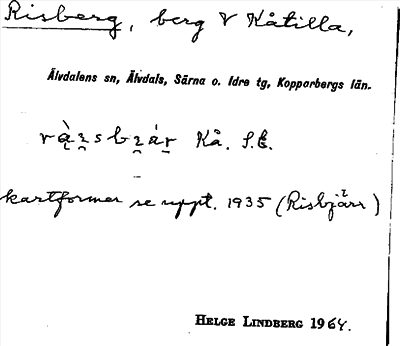 Risberg, berg V Kåtilla,
Älvdalens sn, Älvdals, Särna o. Idre tg, Kopparbergs län.
Kå. S.E.
kartformer se uppt. 1935 (Risbjärr)
HELGE LINDBERG 1964.